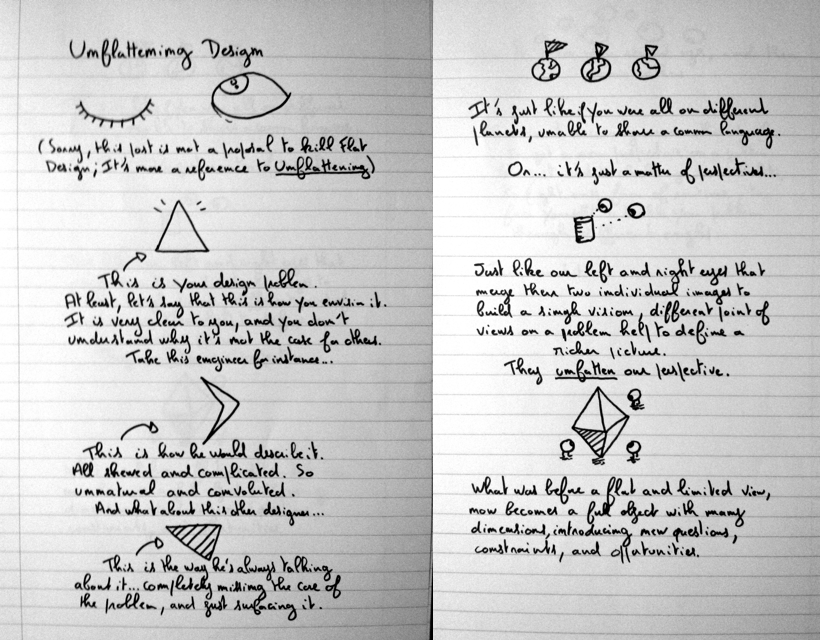 Unflattening Design
(Sorry, this post is not a proposal to kill Flat
Design; It's more a reference to Unflattening)
This is your design problem.
At least, let's say that this is how you envision it.
It is very clear to you, and you don't
understand why it's not the case for others.
Take this engineer for instance...
This is how he would describe it.
All skewed and complicated. So
unnatural and convoluted.
And what about this other designer...
This is the way he's always talking
about it... completely missing the core of
the problem, and just surfacing it.
It's just like if you were all on different
planets, unable to share a common language.
Or... it's just a matter of perspectives...
Just like our left and right eyes that
merge their two individual images to
build a single vision, different point of
views on a problem help to define a
richer picture.
They unflatten our perspective.
What was before a flat and limited view,
now becomes a full object with many
dimensions, introducing new questions,
constraints, and opportunities.